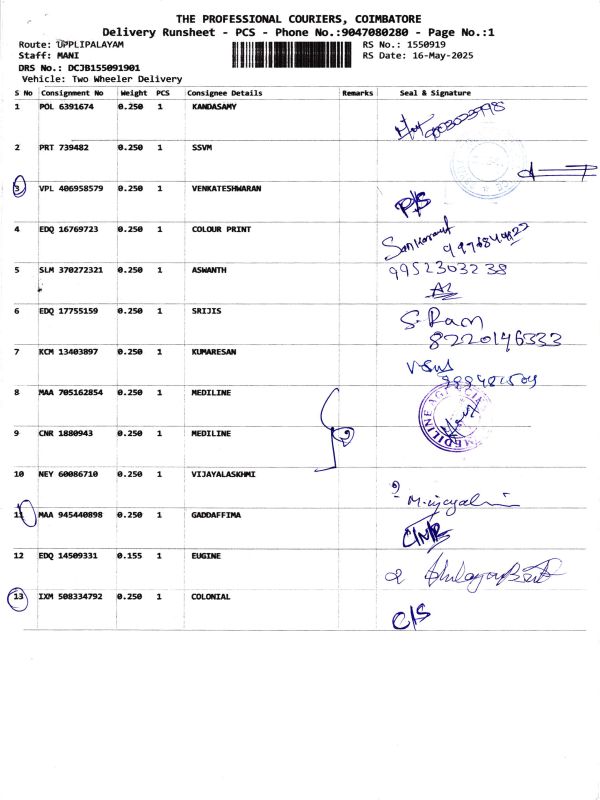 THE PROFESSIONAL COURIERS, COIMBATORE
Delivery Runsheet - PCS - Phone No.:9047080280 - Page No.:1
Route: UPPLIPALAYAM RS No.: 1550919
Staff: MANI RS Date: 16-May-2025
DRS No.: DCJB155091901
Vehicle: Two Wheeler Delivery
S No Consignment No Weight PCS Consignee Details Remarks Seal & Signature
1 POL 6391674 0.250 1 KANDASAMY
2 PRT 739482 0.250 1 SSVM
3 VPL 406958579 0.250 1 VENKATESHWARAN P/S
4 EDQ 16769723 0.250 1 COLOUR PRINT
5 SLM 370272321 0.250 1 ASWANTH 9952303238
6 EDQ 17755159 0.250 1 SRIJIS S. Ram
8220146333
7 KCM 13403897 0.250 1 KUMARESAN
8 MAA 705162854 0.250 1 MEDILINE
9 CNR 1880943 0.250 1 MEDILINE
10 NEY 60086710 0.250 1 VIJAYALASKHMI
11 MAA 945440898 0.250 1 GADDAFFIMA
12 EDQ 14509331 0.155 1 EUGINE
13 IXM 508334792 0.250 1 COLONIAL C/S